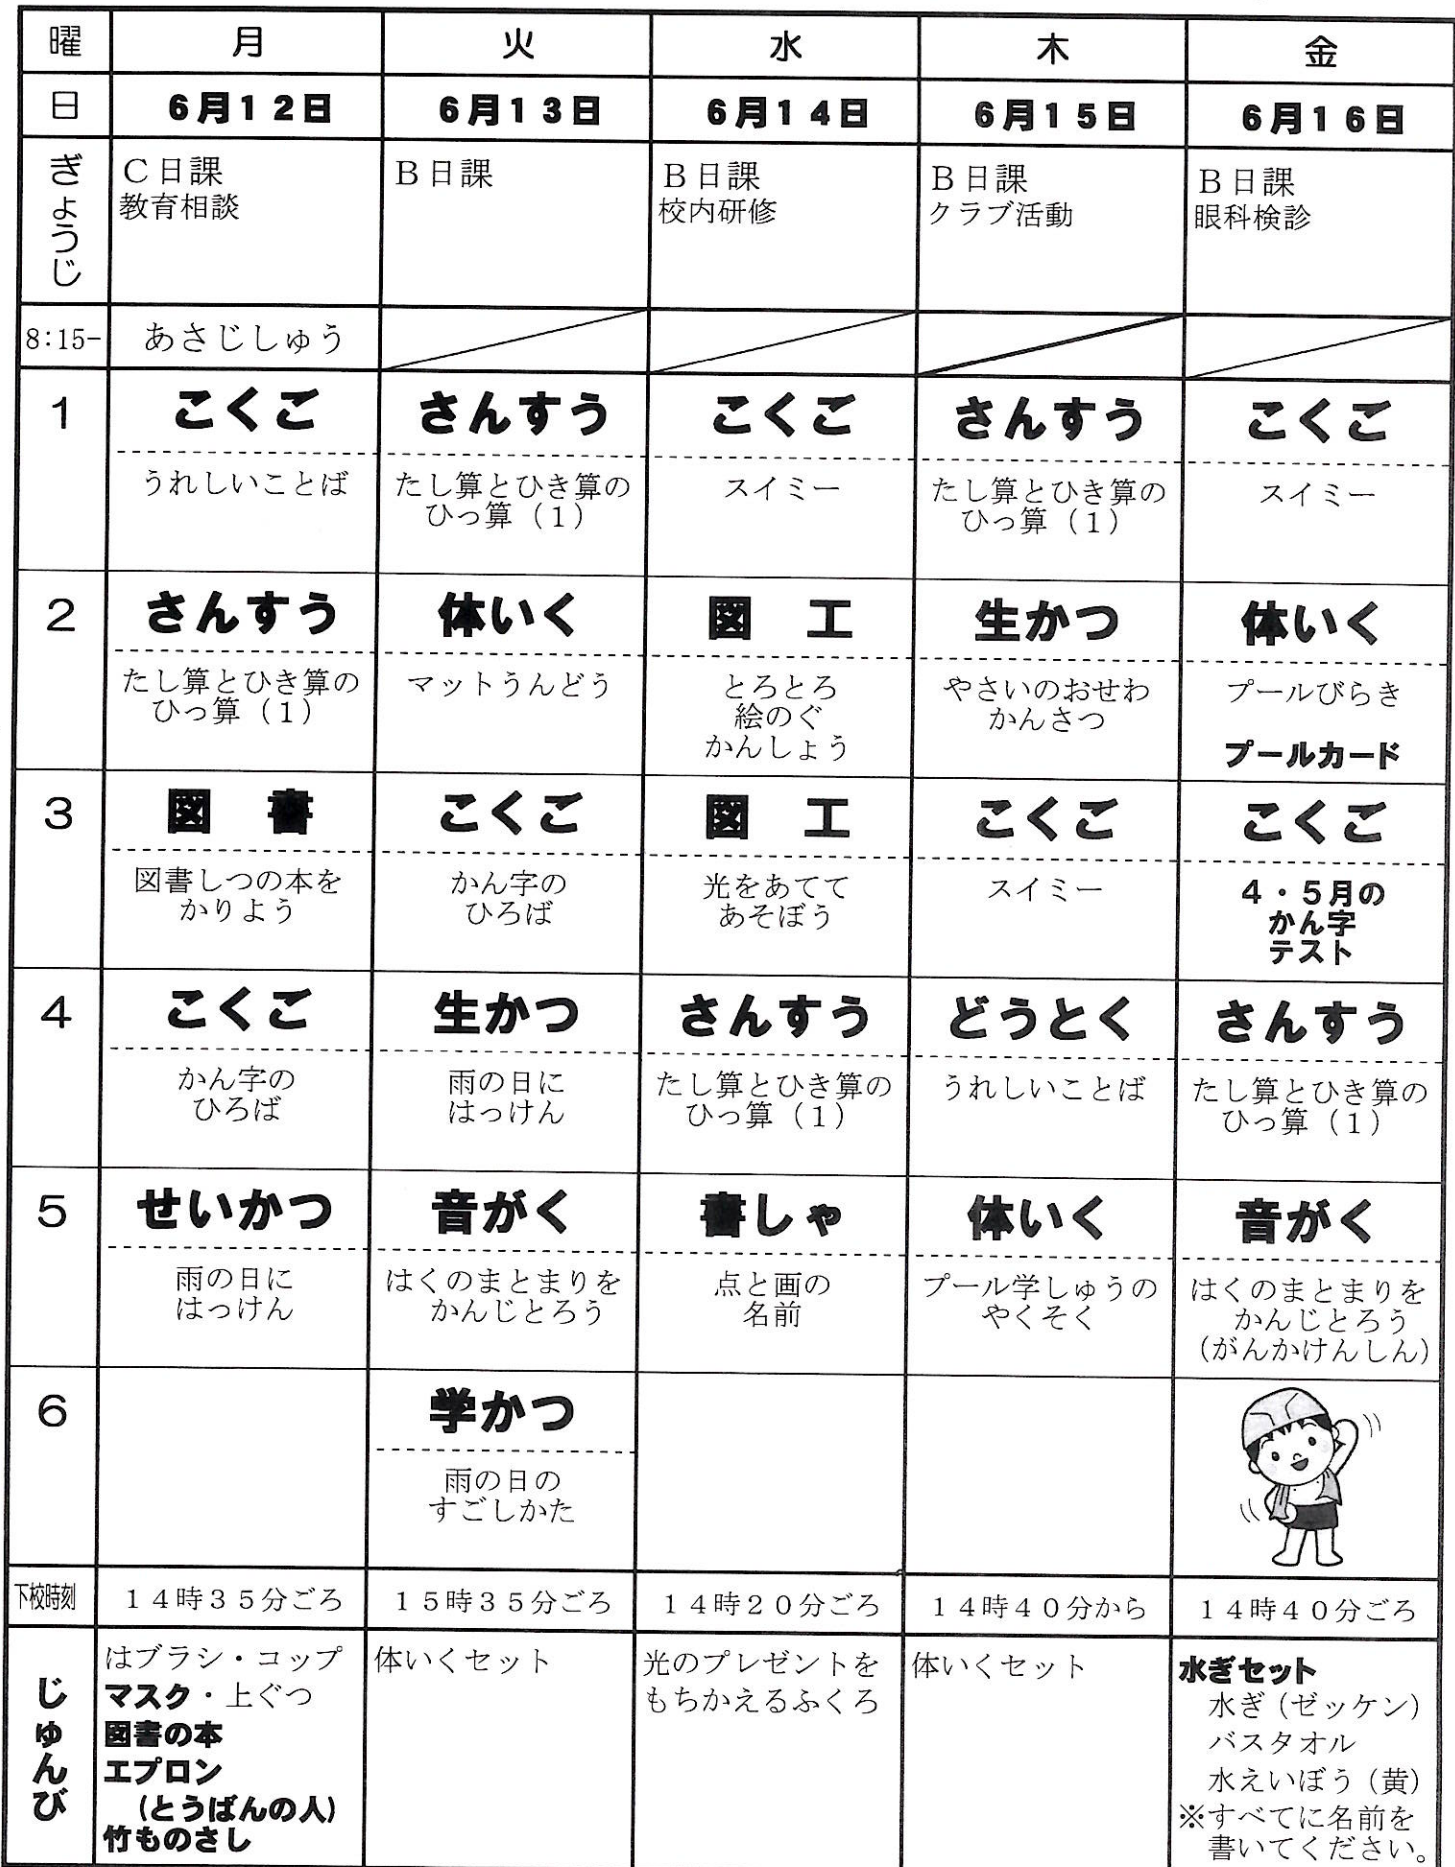 曜 月 火 水 木 金
日 6月12日 6月13日 6月14日 6月15日 6月16日
ぎょうじ
C日課
教育相談
B日課
B日課
校内研修
B日課
クラブ活動
B日課
眼科検診
8:15- あさじしゅう
1
こくご
うれしいことば
さんすう
たし算とひき算の
ひっ算(1)
こくご
スイミー
さんすう
たし算とひき算の
ひっ算(1)
こくご
スイミー
2
さんすう
たし算とひき算の
ひっ算(1)
体いく
マットうんどう
図 工
とろとろ
絵のぐ
かんしょう
生かつ
やさいのおせわ
かんさつ
体いく
プールびらき
プールカード
3
図 書
図書しつの本を
かりよう
こくご
かん字の
ひろば
図 工
光をあてて
あそぼう
こくご
スイミー
こくご
4・5月の
かん字
テスト
4
こくご
かん字の
ひろば
生かつ
雨の日に
はっけん
さんすう
たし算とひき算の
ひっ算(1)
どうとく
うれしいことば
さんすう
たし算とひき算の
ひっ算(1)
5
せいかつ
雨の日に
はっけん
音がく
はくのまとまりを
かんじとろう
書しゃ
点と画の
名前
体いく
プール学しゅうの
やくそく
音がく
はくのまとまりを
かんじとろう
(がんかけんしん)
6
学かつ
雨の日の
すごしかた
下校時刻 14時35分ごろ 15時35分ごろ 14時20分ごろ 14時40分から 14時40分ごろ
じゅんび
はブラシ・コップ
マスク・上ぐつ
図書の本
エプロン
(とうばんの人)
竹ものさし
体いくセット
光のプレゼントを
もちかえるふくろ
体いくセット
水ぎセット
水ぎ(ゼッケン)
バスタオル
水えいぼう(黄)
※すべてに名前を
書いてください。